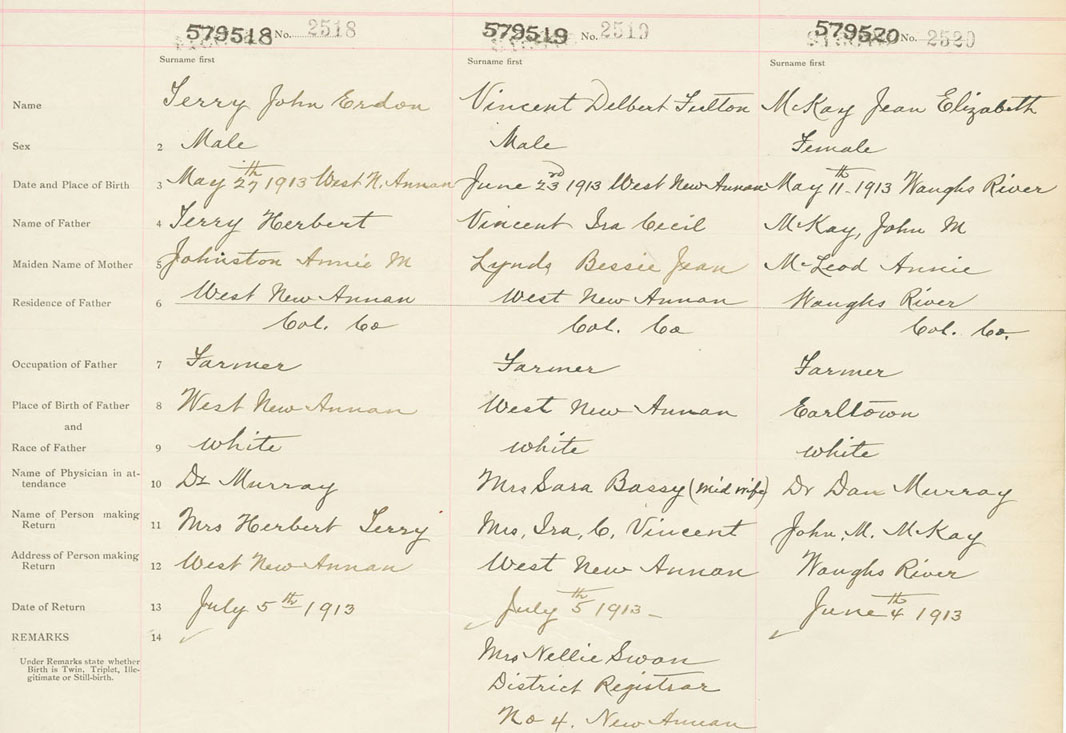 579518 No. 2518 579519 No. 2519 579520 No. 2520
Surname first Surname first Surname first
Name Terry John Erdon Vincent Delbert Fulton McKay Jean Elizabeth
Sex 2 Male Male Female
Date and Place of Birth 3 May 27th 1913 West N. Annan June 23rd 1913 West New Annan May 11th - 1913 Waughs River
Name of Father 4 Terry Herbert Vincent Ira Cecil McKay, John M
Maiden Name of Mother 5 Johnston Annie M Lynds Bessie Jean McLeod Annie
Residence of Father 6 West New Annan West New Annan Waughs River
Col. Co Col. Co Col. Co.
Occupation of Father 7 Farmer Farmer Farmer
Place of Birth of Father 8 West New Annan West New Annan Earltown
and
Race of Father 9 white white white
Name of Physician in at-
tendance 10 Dr Murray Mrs Sara Bassy (mid wife) Dr Dan Murray
Name of Person making
Return 11 Mrs Herbert Terry Mrs, Ira, C, Vincent John, M. McKay
Address of Person making
Return 12 West New Annan West New Annan Waughs River
Date of Return 13 July 5th 1913 July 5th 1913 - June 4th 1913
REMARKS 14
Under Remarks state whether
Birth is Twin, Triplet, Ille-
gitimate or Still-birth.
Mrs Nellie Swan
District Registrar
No 4. New Annan